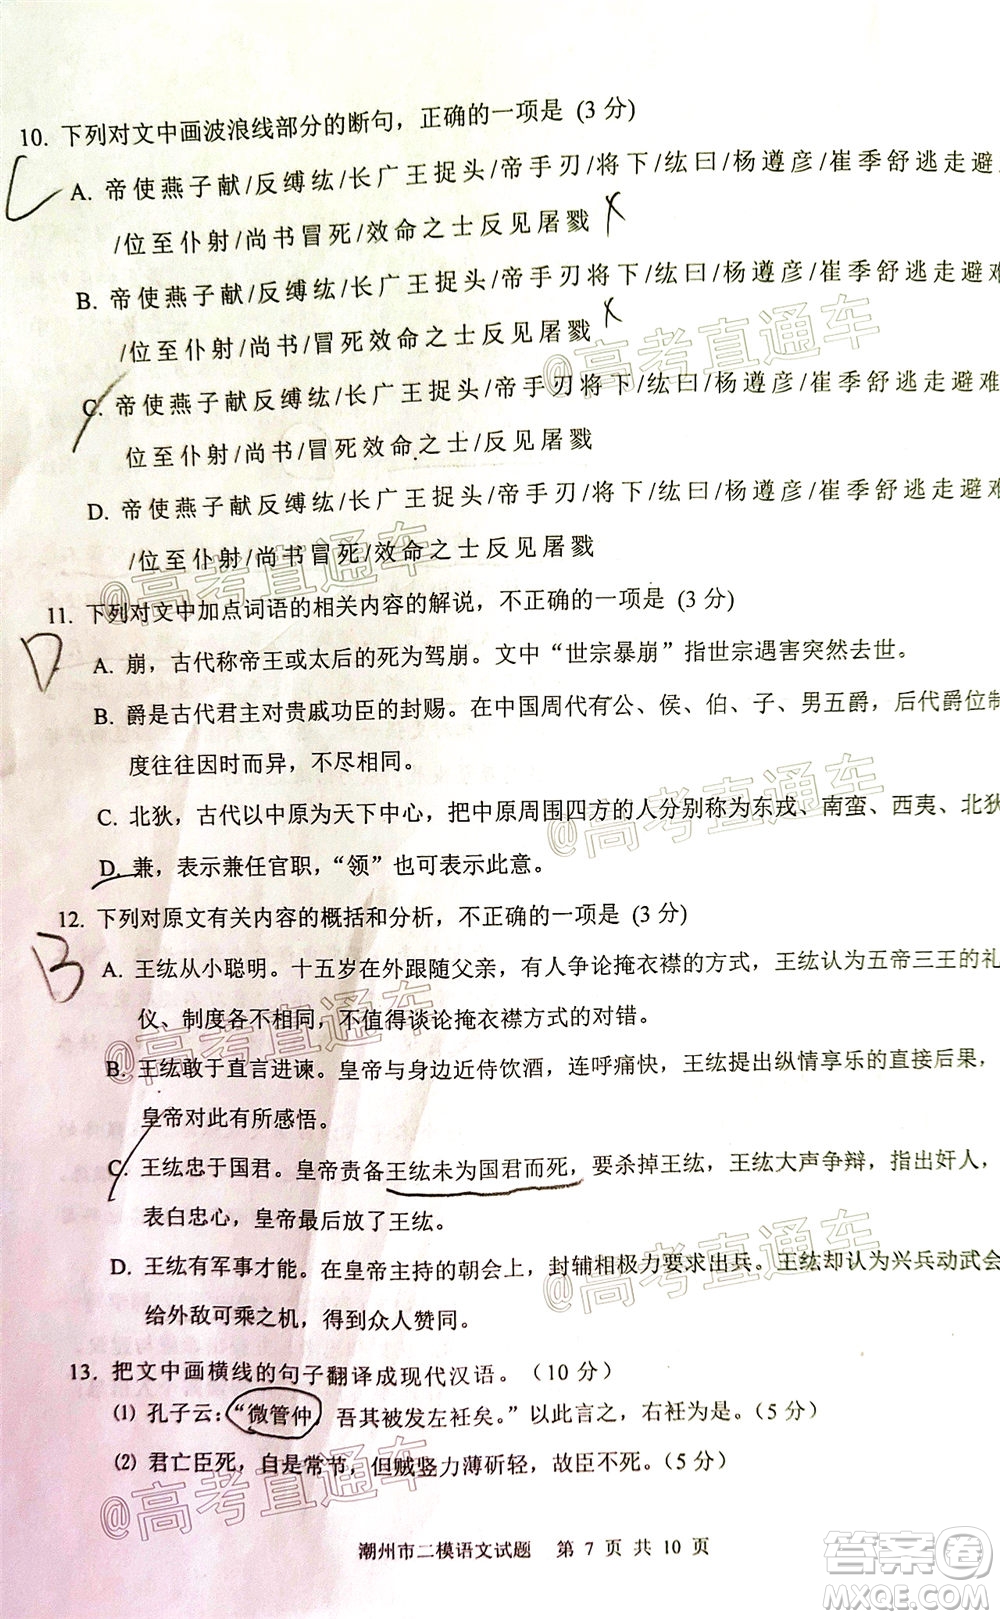 10. 下列对文中画波浪线部分的断句，正确的一项是 (3 分)
A. 帝使燕子献/反缚纮/长广王捉头/帝手刃/将下/纮曰/杨遵彦/崔季舒逃走避
/位至仆射/尚书冒死/效命之士反见屠戮
B. 帝使燕子献/反缚纮/长广王捉头/帝手刃将下/纮曰/杨遵彦/崔季舒逃走避难
/位至仆射/尚书/冒死效命之士反见屠戮
C. 帝使燕子献反缚纮/长广王捉头/帝手刃将下/纮曰/杨遵彦/崔季舒逃走避难
位至仆射/尚书/冒死效命之士/反见屠戮
D. 帝使燕子献反缚纮/长广王捉头/帝手刃/将下/纮曰/杨遵彦/崔季舒逃走避难
/位至仆射/尚书冒死/效命之士/反见屠戮
11. 下列对文中加点词语的相关内容的解说，不正确的一项是 (3 分)
A. 崩，古代称帝王或太后的死为驾崩。文中“世宗暴崩”指世宗遇害突然去世。
B. 爵是古代君主对贵戚功臣的封赐。在中国周代有公、侯、伯、子、男五爵，后代爵位制
度往往因时而异，不尽相同。
C. 北狄，古代以中原为天下中心，把中原周围四方的人分别称为东戎、南蛮、西夷、北狄
D. 兼，表示兼任官职，“领”也可表示此意。
12. 下列对原文有关内容的概括和分析，不正确的一项是 (3 分)
A. 王纮从小聪明。十五岁在外跟随父亲，有人争论掩衣襟的方式，王纮认为五帝三王的礼
仪、制度各不相同，不值得谈论掩衣襟方式的对错。
B. 王纮敢于直言进谏。皇帝与身边近侍饮酒，连呼痛快，王纮提出纵情享乐的直接后果，
皇帝对此有所感悟。
C. 王纮忠于国君。皇帝责备王纮未为国君而死，要杀掉王纮，王纮大声争辩，指出奸人，
表白忠心，皇帝最后放了王纮。
D. 王纮有军事才能。在皇帝主持的朝会上，封辅相极力要求出兵。王纮却认为兴兵动武会
给外敌可乘之机，得到众人赞同。
13. 把文中画横线的句子翻译成现代汉语。（10 分）
⑴ 孔子云：“微管仲，吾其被发左衽矣。”以此言之，右衽为是。（5 分）
⑵ 君亡臣死，自是常节，但贼竖力薄斫轻，故臣不死。（5 分）
潮州市二模语文试题 第 7 页 共 10 页
C
D
B
@高考直通车
@高考直通车
@高考直通车
@高考直通车
@高考直通车
@高考直通车
答案圈
MXQE.COM